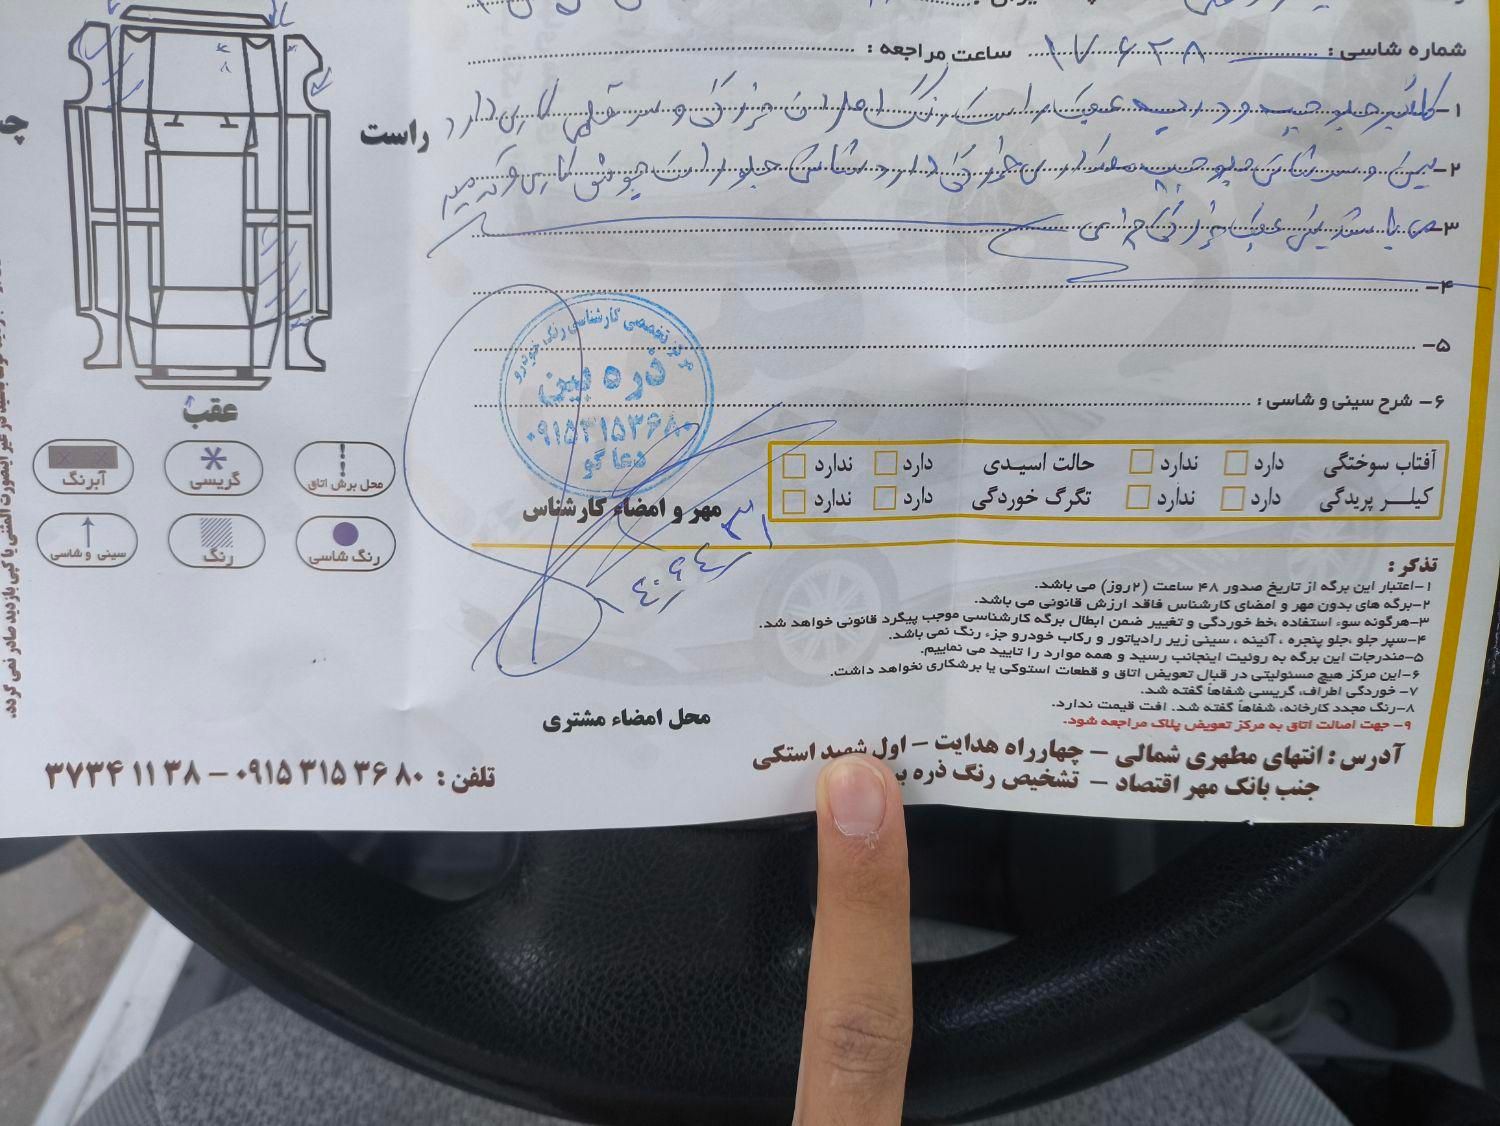 شماره شاسی : ۱۷۶۲۸ ساعت مراجعه :
۱- گلگیر جلو چپ و درب عقب راست رنگ اطراف خوردگی و سرقلمی کاری دارد
۲- سینی و سر شاسی جلو چپ مقداری خوردگی دارد شاسی جلو راست جوش کاری و ترمیم
۳- عقب خوردگی جزئی
۴-
۵-
۶- شرح سینی و شاسی :
راست
عقب
محل برش اتاق
گریسی
آبرنگ
رنگ شاسی
رنگ
سینی و شاسی
مرکز تخصصی کارشناسی رنگ خودرو
ذره بین
۰۹۱۵۳۱۵۳۶۸۰
دعا گو
مهر و امضاء کارشناس
آفتاب سوختگی دارد ندارد حالت اسیدی دارد ندارد
کیلر پریدگی دارد ندارد تگرگ خوردگی دارد ندارد
تذکر :
۱-اعتبار این برگه از تاریخ صدور ۴۸ ساعت (۲روز) می باشد.
۲-برگه های بدون مهر و امضای کارشناس فاقد ارزش قانونی می باشد.
۳-هرگونه سوء استفاده ،خط خوردگی و تغییر ضمن ابطال برگه کارشناسی موجب پیگرد قانونی خواهد شد.
۴-سپر جلو ،جلو پنجره ، آئینه ، سینی زیر رادیاتور و رکاب خودرو جزء رنگ نمی باشد.
۵-مندرجات این برگه به روئیت اینجانب رسید و همه موارد را تایید می نماییم.
۶-این مرکز هیچ مسئولیتی در قبال تعویض اتاق و قطعات استوکی یا برشکاری نخواهد داشت.
۷- خوردگی اطراف، گریسی شفاهاً گفته شد.
۸-رنگ مجدد کارخانه، شفاهاً گفته شد. افت قیمت ندارد.
۹- جهت اصالت اتاق به مرکز تعویض پلاک مراجعه شود.
محل امضاء مشتری
آدرس : انتهای مطهری شمالی – چهارراه هدایت – اول شهید استکی
جنب بانک مهر اقتصاد – تشخیص رنگ ذره
تلفن : ۰۹۱۵ ۳۱۵ ۳۶ ۸۰ – ۳۷۳۴ ۱۱ ۳۸